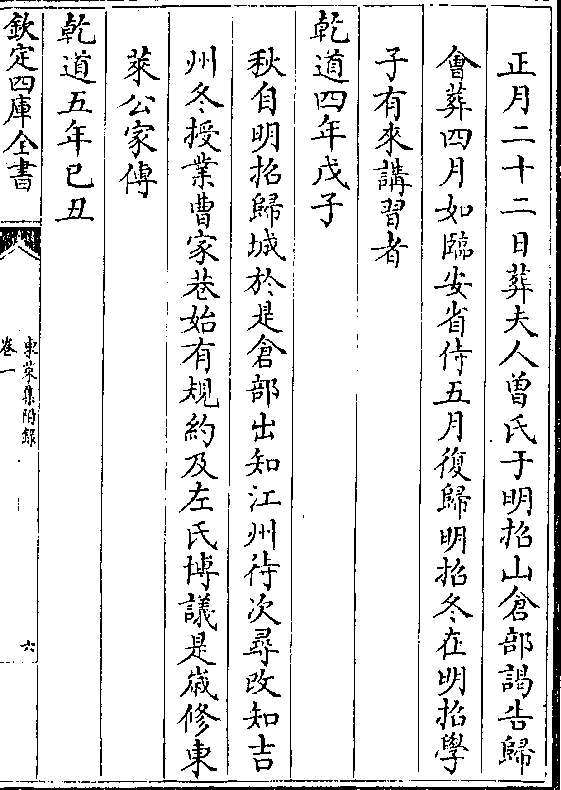 正月二十二日葬夫人曾氏于明招山倉部謁告歸
會葬四月如臨安省侍五月復歸明招冬在明招學
子有來講習者
乾道四年戊子
秋自明招歸城於是倉部出知江州待次尋改知吉
州冬授業曹家巷始有規約及左氏博議是嵗修東
萊公家傳
乾道五年已丑
欽定四庫全書
東萊集附録
卷一
六